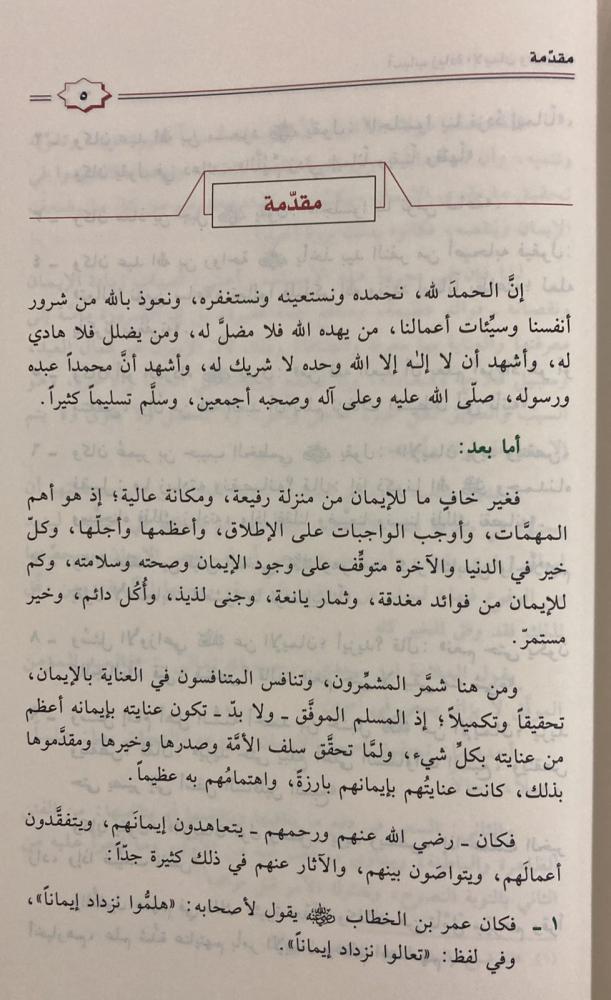 مقدّمة
٥
مقدّمة
إنَّ الحمدَ لله، نحمده ونستعينه ونستغفره، ونعوذ بالله من شرور
أنفسنا وسيِّئات أعمالنا، من يهده الله فلا مضلَّ له، ومن يضلل فلا هادي
له، وأشهد أن لا إلـٰه إلا الله وحده لا شريك له، وأشهد أنَّ محمداً عبده
ورسوله، صلّى الله عليه وعلى آله وصحبه أجمعين، وسلَّم تسليماً كثيراً.
أما بعد:
فغير خافٍ ما للإيمان من منزلة رفيعة، ومكانة عالية؛ إذ هو أهم
المهمَّات، وأوجب الواجبات على الإطلاق، وأعظمها وأجلّها، وكلّ
خير في الدنيا والآخرة متوقِّف على وجود الإيمان وصحته وسلامته، وكم
للإيمان من فوائد مغدقة، وثمار يانعة، وجنى لذيذ، وأُكُل دائم، وخير
مستمرّ.
ومن هنا شمَّر المشمِّرون، وتنافس المتنافسون في العناية بالإيمان،
تحقيقاً وتكميلاً؛ إذ المسلم الموفَّق ـ ولا بدّ ـ تكون عنايته بإيمانه أعظم
من عنايته بكلِّ شيء، ولمَّا تحقَّق سلف الأمَّة وصدرها وخيرها ومقدَّموها
بذلك، كانت عنايتُهم بإيمانهم بارزةً، واهتمامُهم به عظيماً.
فكان ـ رضي الله عنهم ورحمهم ـ يتعاهدون إيمانَهم، ويتفقَّدون
أعمالَهم، ويتواصَون بينهم، والآثار عنهم في ذلك كثيرة جدّاً:
١ ـ فكان عمر بن الخطاب ﵁ يقول لأصحابه: «هلمُّوا نزداد إيماناً»،
وفي لفظ: «تعالوا نزداد إيماناً».